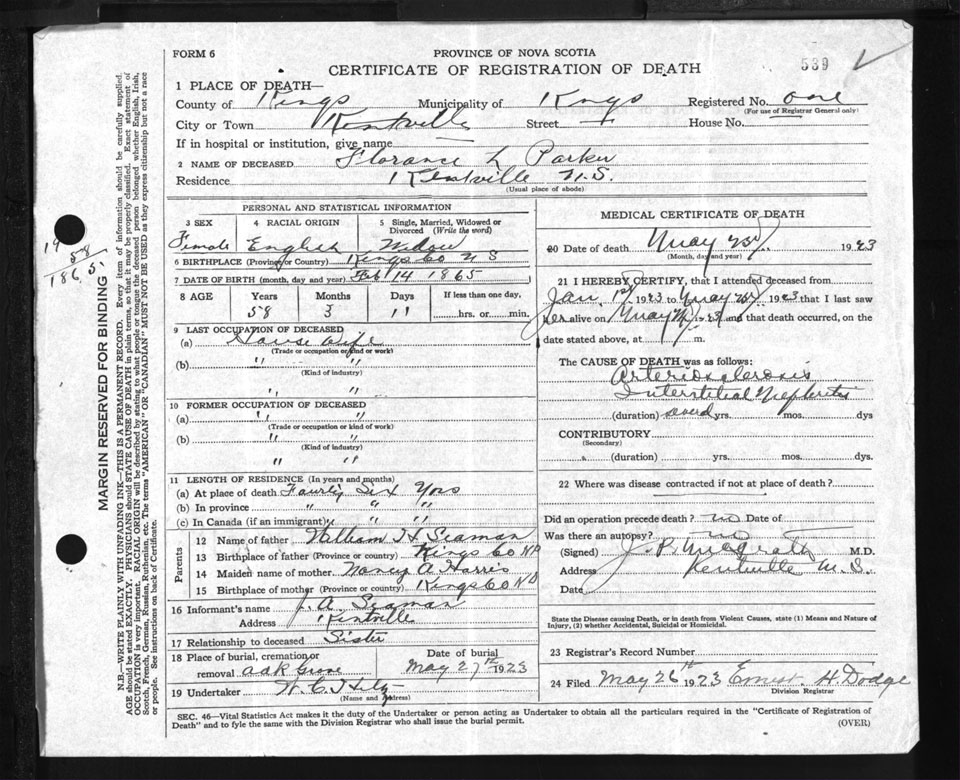 FORM 6
PROVINCE OF NOVA SCOTIA
CERTIFICATE OF REGISTRATION OF DEATH
539
1 PLACE OF DEATH—
County of Kings Municipality of Kings Registered No. one
(For use of Registrar General only)
City or Town Kentville Street House No.
If in hospital or institution, give name
2 NAME OF DECEASED Florance L Parker
Residence Kentville N.S.
(Usual place of abode)
PERSONAL AND STATISTICAL INFORMATION
3 SEX 4 RACIAL ORIGIN 5 Single, Married, Widowed or Divorced (Write the word)
Female English Widow
6 BIRTHPLACE (Province or Country) Kings Co N S
7 DATE OF BIRTH (month, day and year) Feb 14 1865
8 AGE Years Months Days If less than one day,
58 3 11 hrs. or min.
9 LAST OCCUPATION OF DECEASED
(a) House Wife
(Trade or occupation or kind or work)
(b) " "
(Kind of industry)
" "
10 FORMER OCCUPATION OF DECEASED
(a) " "
(Trade or occupation or kind of work)
(b) " "
(Kind of industry)
" "
11 LENGTH OF RESIDENCE (In years and months)
(a) At place of death Six Yrs
(b) In province " " "
(c) In Canada (if an immigrant) " "
Parents
12 Name of father William H Seaman
13 Birthplace of father (Province or country) Kings Co
14 Maiden name of mother Nancy A Harris
15 Birthplace of mother (Province or country) Kings Co
16 Informant's name J. A. Seaman
Address Kentville
17 Relationship to deceased Sister
18 Place of burial, cremation or removal Oak Grove
Date of burial May 27th 1923
19 Undertaker W. C.
(Name and Address)
MEDICAL CERTIFICATE OF DEATH
20 Date of death May 1923
(Month, day and year)
21 I HEREBY CERTIFY, that I attended deceased from
Jan. 1st 1923 to May 1923 that I last saw
her alive on May 23 and that death occurred, on
date stated above, at m.
The CAUSE OF DEATH was as follows:
Arteriosclerosis
Interstitial Nephritis
(duration) several yrs. mos. dys
CONTRIBUTORY
(Secondary)
(duration) yrs. mos. dys.
22 Where was disease contracted if not at place of death?
Did an operation precede death? no Date of
Was there an autopsy? no
(Signed) J. P. McGrath M.D.
Address Kentville N. S.
Date
State the Disease causing Death, or in death from Violent Causes, state (1) Means and Nature of Injury, (2) whether Accidental, Suicidal or Homicidal.
23 Registrar's Record Number
24 Filed May 26th 1923 Ernest H Dodge
Division Registrar
SEC. 46—Vital Statistics Act makes it the duty of the Undertaker or person acting as Undertaker to obtain all the particulars required in the "Certificate of Registration of
Death" and to fyle the same with the Division Registrar who shall issue the burial permit.
(OVER)
MARGIN RESERVED FOR BINDING
N.B.—WRITE PLAINLY WITH UNFADING INK—THIS IS A PERMANENT RECORD. Every item of information should be carefully supplied.
AGE should be stated EXACTLY. PHYSICIANS should STATE CAUSE OF DEATH in plain terms, so that it may be properly classified. Exact statement of
OCCUPATION is very important. RACIAL ORIGIN will be described by stating to what people or tongue the deceased person belonged whether English, Irish,
Scotch, French, German, Russian, Ruthenian, etc. The terms "AMERICAN" OR "CANADIAN" MUST NOT BE USED as they express citizenship but not a race
or people. See instructions on back of Certificate.
19
58
1865.